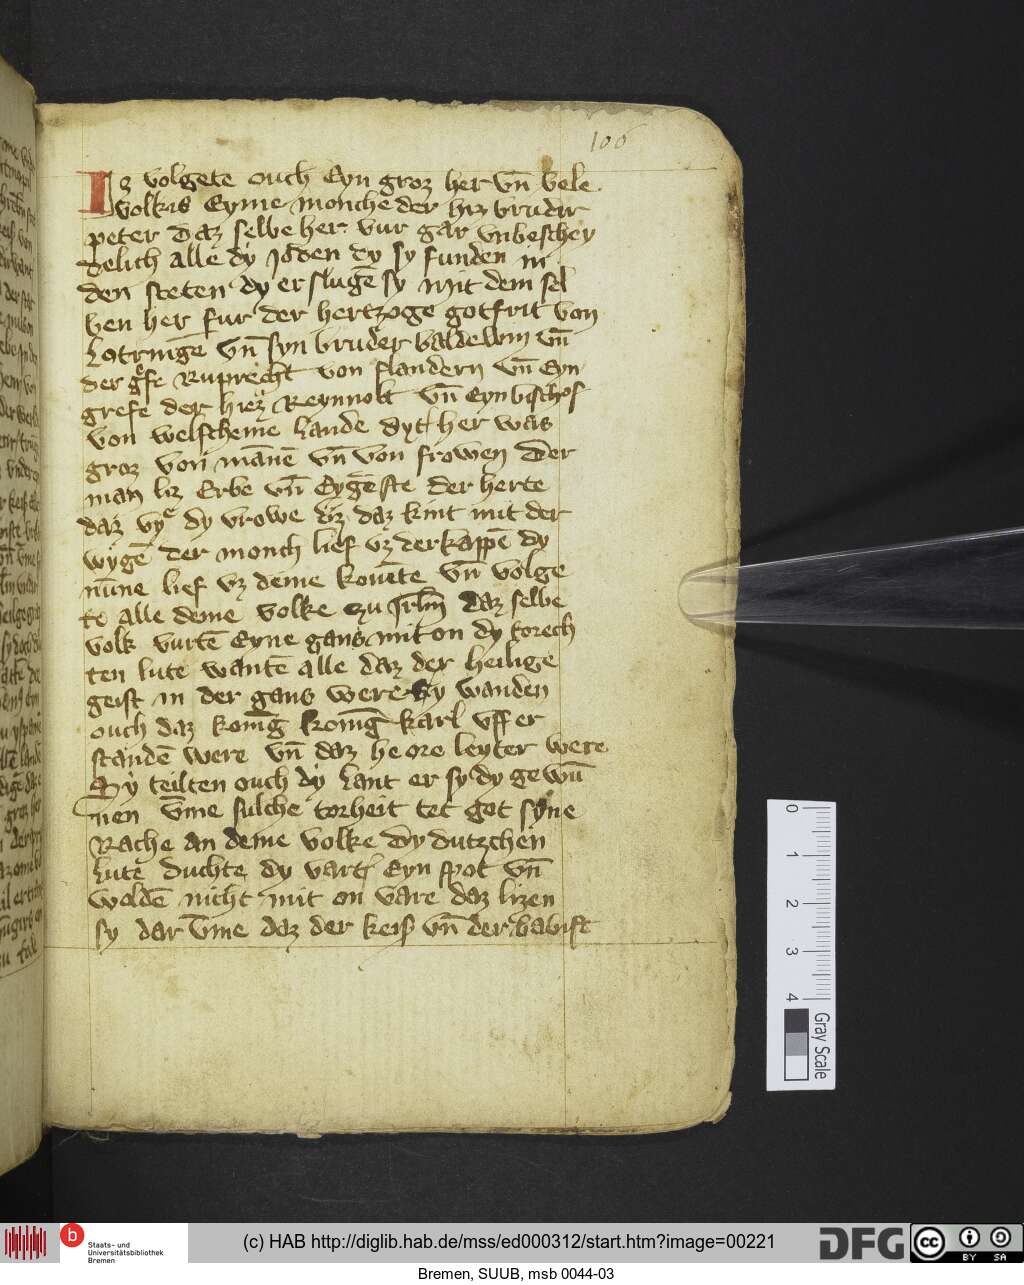 106
Iz volgete ouch Eyn groz her vn̄ vele
volkis Eyme monche der hiz bruder
peter Daz selbe her vur gar vnbeschey
delich alle dy Joden dy sy funden in
den steten dy er slugē sy mit dem sel
ben her fur der hertzoge gotfrit von
Lotringē vn̄ syn bruder baldewin vn̄
der grefe Ruprecht von flandern vn̄ Eyn
grefe der hiez Reynnolt vn̄ Eyn bischof
von welscheme Lande Dyt her was
groz von mānē vn̄ von frowen Der
man liz Erbe vn̄ Eygeste der herte
daz vye dy vrowe liz daz kint mit der
wygē der monch lief vz der kappē dy
nūne lief vz deme kouēte vn̄ volge
te alle deme volke zu Jrlm̄ Daz selbe
volk vurtē Eyne gans mit on dy torech
ten lute wantē alle daz der heilige
geist in der gans were Sy wanden
ouch daz konīg konīg karl vff er
standē were vn̄ daz he ore leyter were
Sy teilten ouch dy Lant er sy dy gewū
nen v̄me sulche torheit tet got syne
Rache an deme volke dy dutzchen
Lute duchte dy vart Eyn spot vn̄
woldē nicht mit on vare daz lizen
sy dar v̄me daz der keis vn̄ der babist
0 1 2 3 4
Gray Scale
b
Staats- und
Universitätsbibliothek
Bremen
(c) HAB http://diglib.hab.de/mss/ed000312/start.htm?image=00221
DFG
cc BY SA
Bremen, SUUB, msb 0044-03